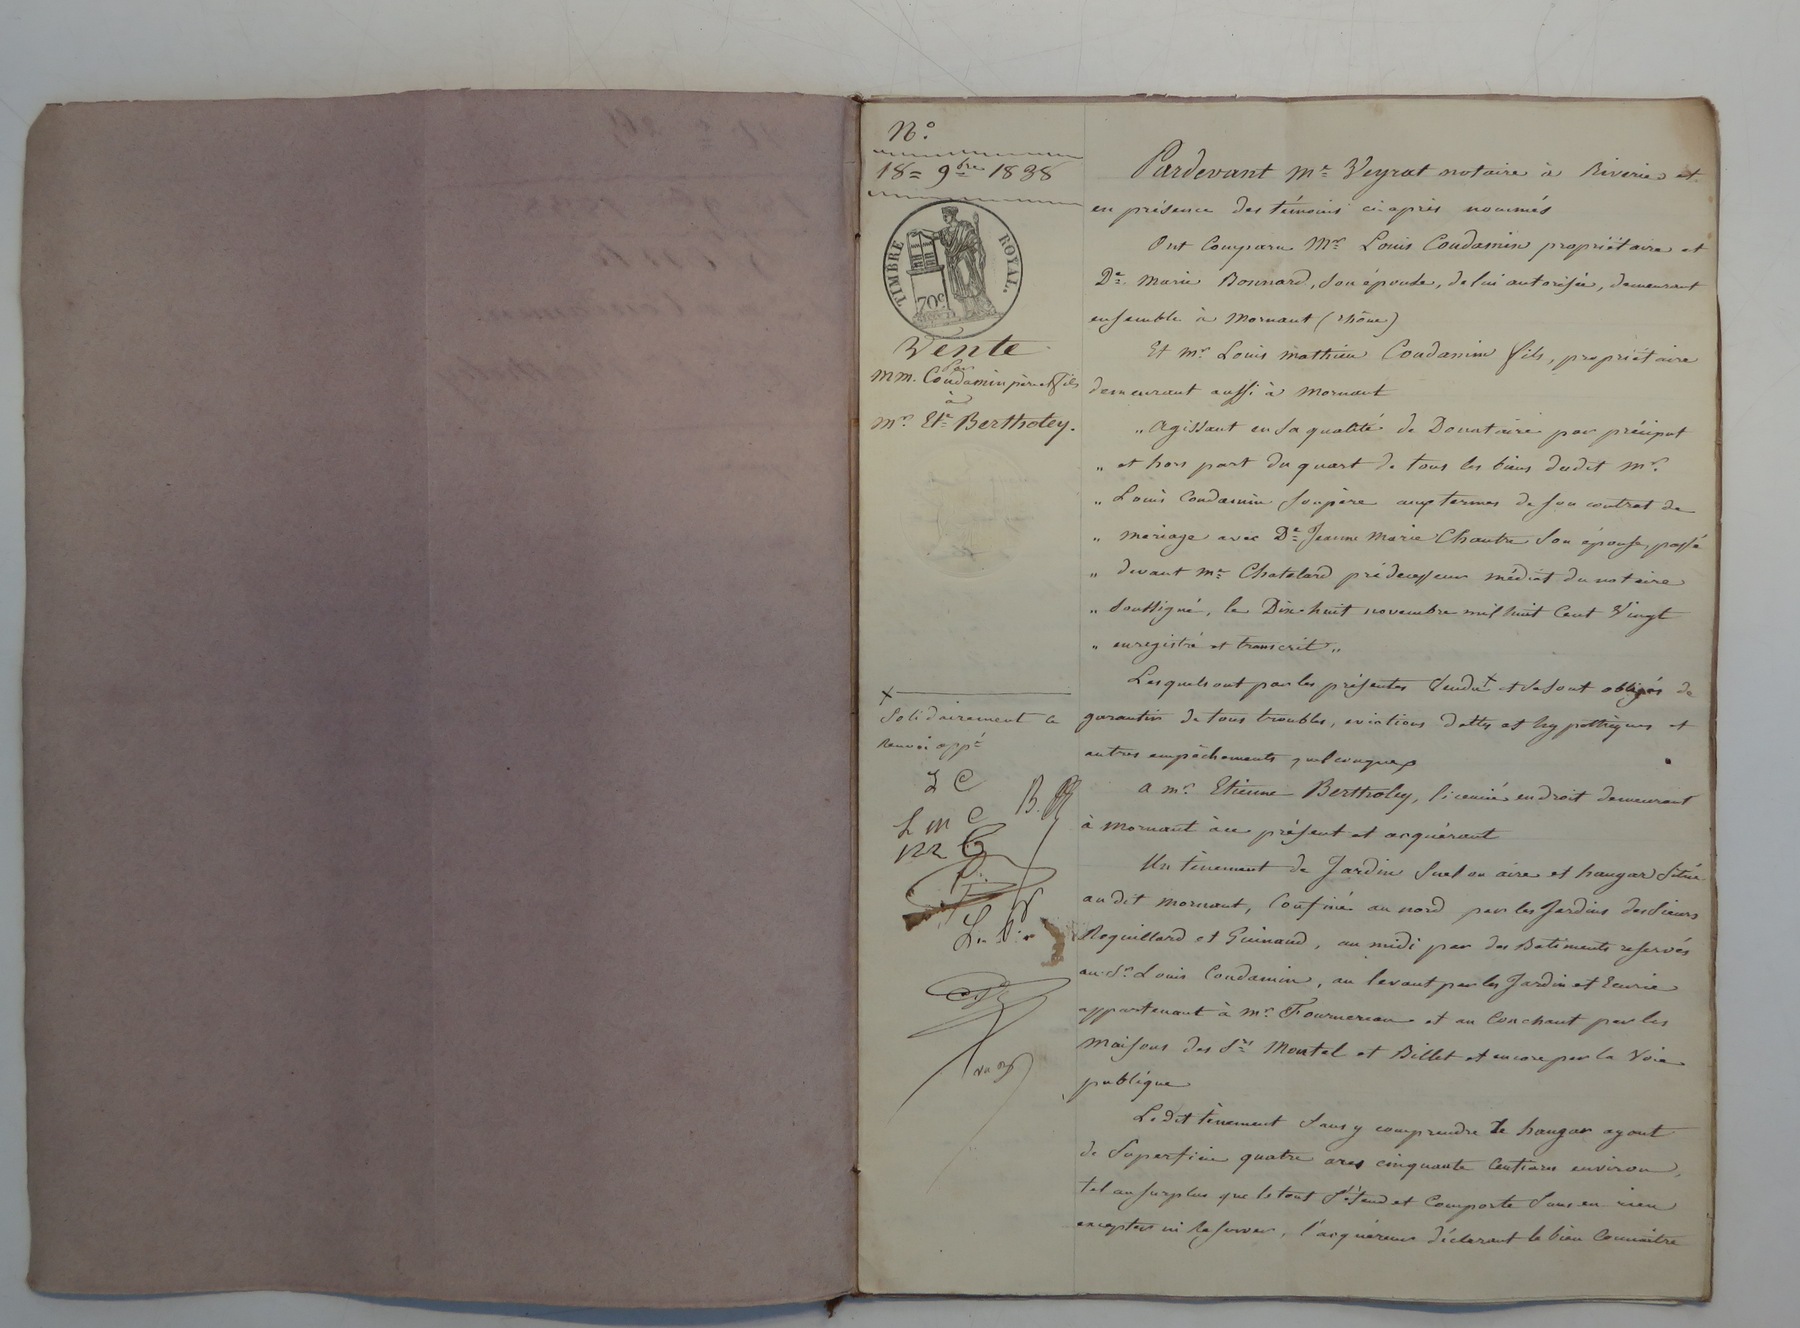 N.°
18= 9bre 1838
TIMBRE ROYAL.
70c
Vente
par
MM. Condamin père et fils
à
Mr. Ete Bertholey.
Pardevant Me Veyrat notaire à Riverie et
en présence des témoins ci-après nommés
Ont Comparu Mr Louis Condamin propriétaire et
De Marie Bonnard, son épouse, de lui autorisée, demeurant
ensemble à Mornant (Rhône)
Et Mr Louis Mathieu Condamin fils, propriétaire
demeurant aussi à Mornant
„ Agissant en sa qualité de Donataire par préciput
„ et hors part du quart de tous les biens dudit Mr.
„ Louis Condamin son père aux termes de son contrat de
„ mariage avec De Jeanne Marie Chantre son épouse, passé
„ devant Me Chatelard prédécesseur médiat du notaire
„ soussigné, le Dix huit novembre mil huit Cent Vingt
„ enregistré et transcrit „
Lesquels ont par les présentes Vendu x et se sont obligés de
garantir de tous troubles, evictions dettes et hypothèques et
autres empêchements quelconques
A Mr. Etienne Bertholey, licencié en droit demeurant
à Mornant à ce présent et acquérant
Un tènement de Jardin Suel ou aire et hangar Situé
au dit Mornant, Confiné au nord par les Jardins des Sieurs
Reguillard et Guinand, au midi par des Batiments reservés
au Sr. Louis Condamin, au levant par les Jardin et Ecurie
appartenant à Mr. Fournereau et au Couchant par les
Maisons des Srs Montel et Billet et encore par la Voie
publique
Le dit tènement Sans y comprendre le hangar ayant
de Superficie quatre ares cinquante Centiares environ,
tel au surplus que le tout S'étend et Comporte Sans en rien
excepter ni Reserver, l'acquéreur déclarant le bien Connaître
x
Solidairement ce
Renvoi appé
L C
B.
L M C